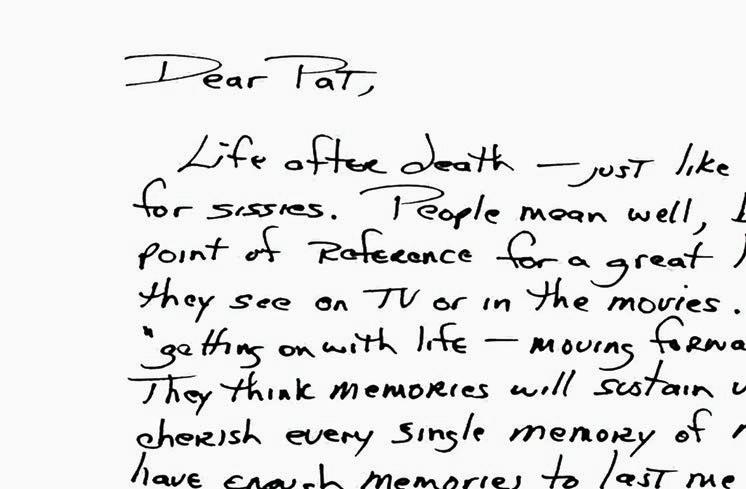 Dear Pat,
Life after death — just like
for sissies. People mean well,
point of Reference for a great
they see on TV or in the movies.
"getting on with life — moving
They think memories will sustain
cherish every single memory of
have enough memories to last me